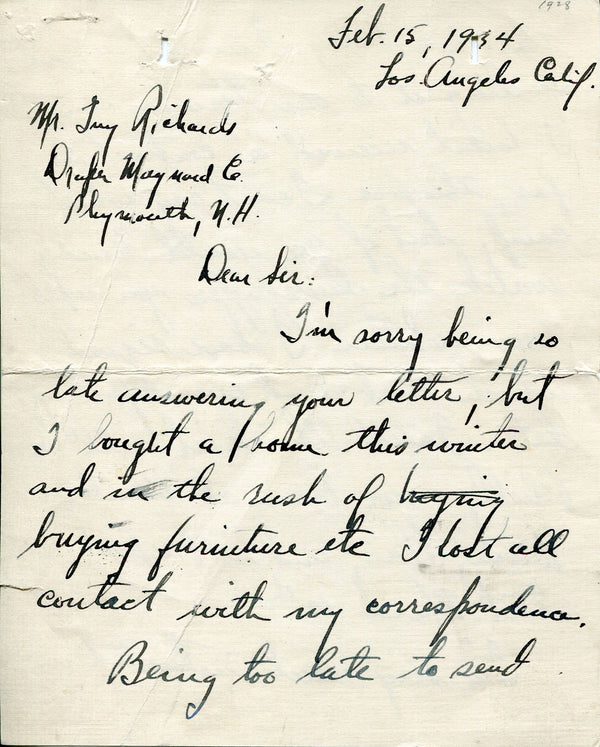 1928
Feb. 15, 1934
Los Angeles Calif.
Mr. Guy Richards
Draper Maynard Co.
Plymouth, N.H.
Dear Sir:
I'm sorry being so
late answering your letter, but
I bought a home this winter
and in the rush of buying
buying furinture etc I lost all
contact with my correspondence.
Being too late to send